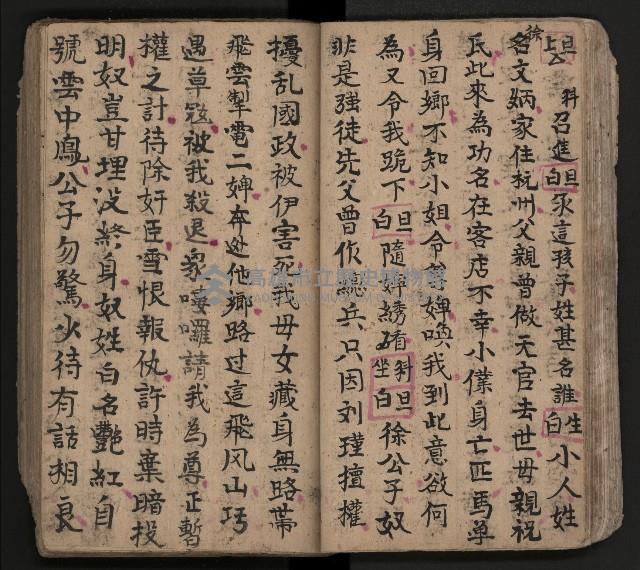 旦上公 科召進 旦白 承這孩子姓甚名誰 生白 小人姓
徐名文炳家住杭州父親曾做天官去世母親祝
氏此來為功名在客店不幸小僕身亡匹馬单
身回鄉不知小姐令婢喚我到此意欲何
為又令我跪下 旦白 隨婢綉 科坐 旦白 徐公子奴
非是强徒先父曾作總兵只因刘瑾擅權
擾乱國政被伊害死我母女藏身無路带
飛雲掣電二婢奔逃他鄉路过這飛风山巧
遇草寇被我殺退眾嘍囉請我為尊正暫
權之計待除奸臣雪恨報仇許時棄暗投
明奴豈甘埋没終身奴姓白名艷紅自
號雲中鳳公子勿驚少待有話相良
高雄市立歷史博物館
KAOHSIUNG MUSEUM OF HISTORY